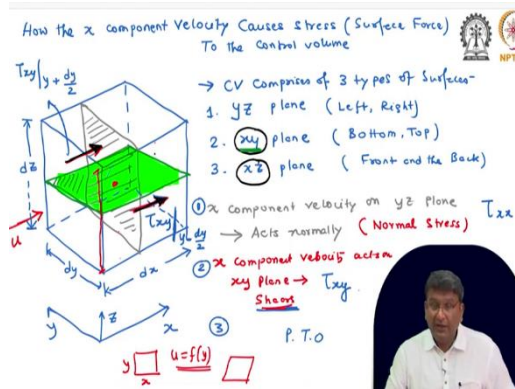 How the x component velocity Causes stress (Surface Force)
To the control volume
τxy|y+dy/2
→ CV Comprises of 3 types of Surfaces-
1. yz plane (Left, Right)
2. xy plane (Bottom, Top)
3. xz plane (Front and the Back)
NPT
dz
u
τxy|y-dy/2
dy
dx
① x component velocity on yz plane τxx
→ Acts normally (Normal Stress)
② x component velocity acts on
xy plane → τxy
Shears
y z x
③ P.T.O
y u=f(y)
x